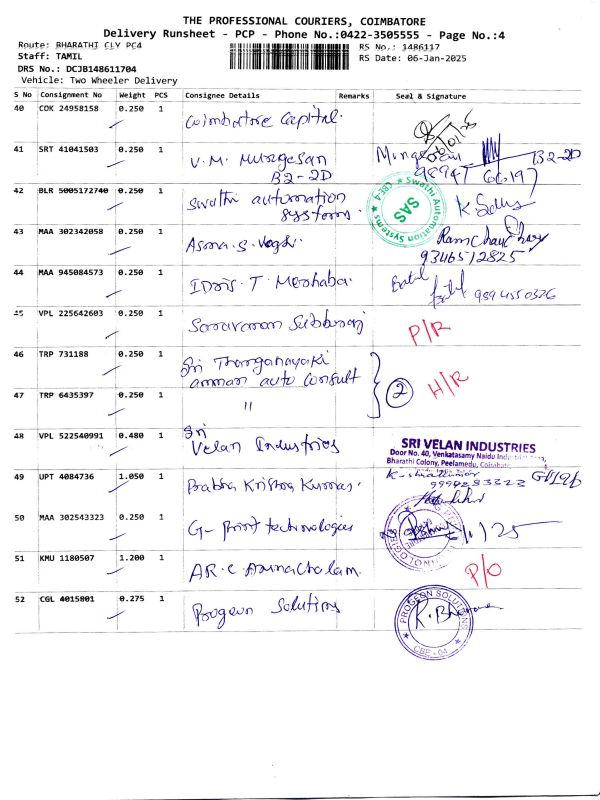 THE PROFESSIONAL COURIERS, COIMBATORE
Delivery Runsheet - PCP - Phone No.:0422-3505555 - Page No.:4
Route: BHARATHI CLY PC4
RS No.: 1486117
Staff: TAMIL
RS Date: 06-Jan-2025
DRS No.: DCJB148611704
Vehicle: Two Wheeler Delivery
S No Consignment No Weight PCS Consignee Details Remarks Seal & Signature
40 CDK 24958158 0.250 1 Coimbatore Capital.
41 SRT 41041503 0.250 1 V.M. Murugesan Murugesan B2-2D
B2-2D 98947 66197
42 BLR 5005172740 0.250 1 Swathi automation
systems.
Swathi Automation Systems CBE-4
SAS
43 MAA 302342058 0.250 1 Asma.S. Ram Chaudhary
9346512825
44 MAA 945084573 0.250 1 Idris.T. Merchaba. 9894550326
45 VPL 225642603 0.250 1 Saravanan Subburaj P/R
46 TRP 731188 0.250 1 Sri Thanganayaki
amman auto Consult
2 H/R
47 TRP 6435397 0.250 1 "
48 VPL 522540991 0.480 1 Sri
Velan Industries
SRI VELAN INDUSTRIES
Door No. 40, Venkatasamy Naidu
Bharathi Colony, Peelamedu,
49 UPT 4084736 1.050 1 Prabhu Krishna Kumar.
50 MAA 302543323 0.250 1 G-Print technologies
51 KMU 1180507 1.200 1 AR.C Arunachalam. P/O
52 CGL 4015801 0.275 1 Progeon Solutions
PROGEON SOLUTIONS
CBE-04